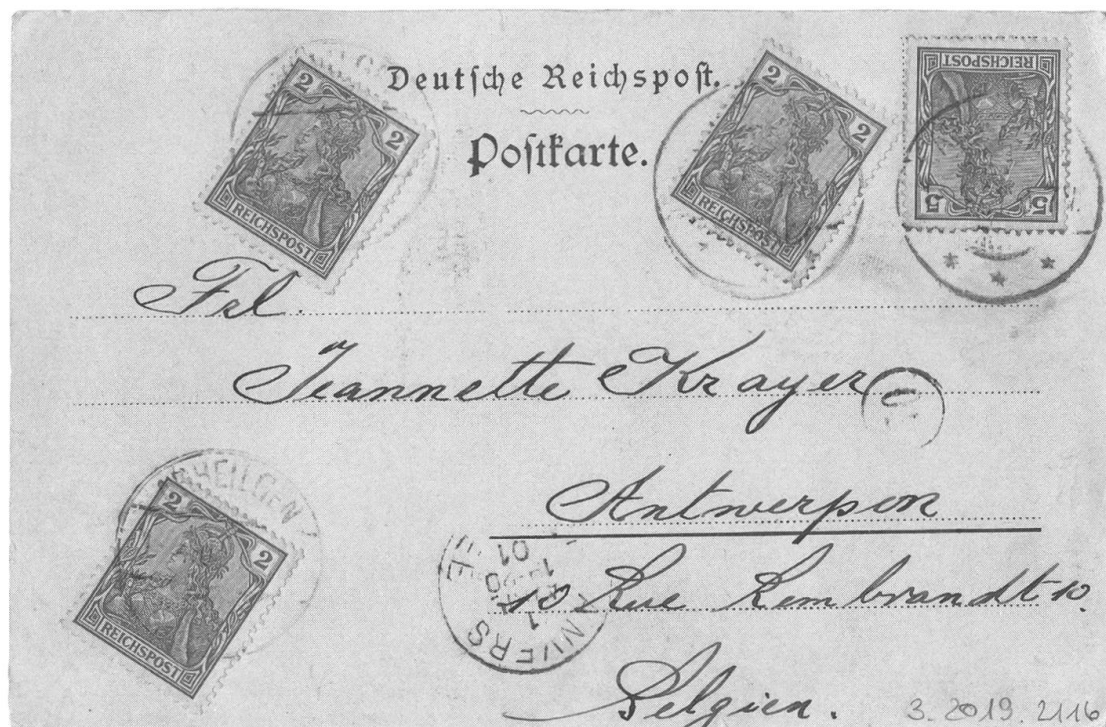 Deutsche Reichspost.
Postkarte.
2 2
REICHSPOST
2 2
REICHSPOST
5 5
REICHSPOST
Frl.
Jeannette Krayer
Antwerpen
10 Rue Rembrandt 10.
Belgien.
2 2
REICHSPOST
HEILGEN
ANVERS
01
3. 2019 2116